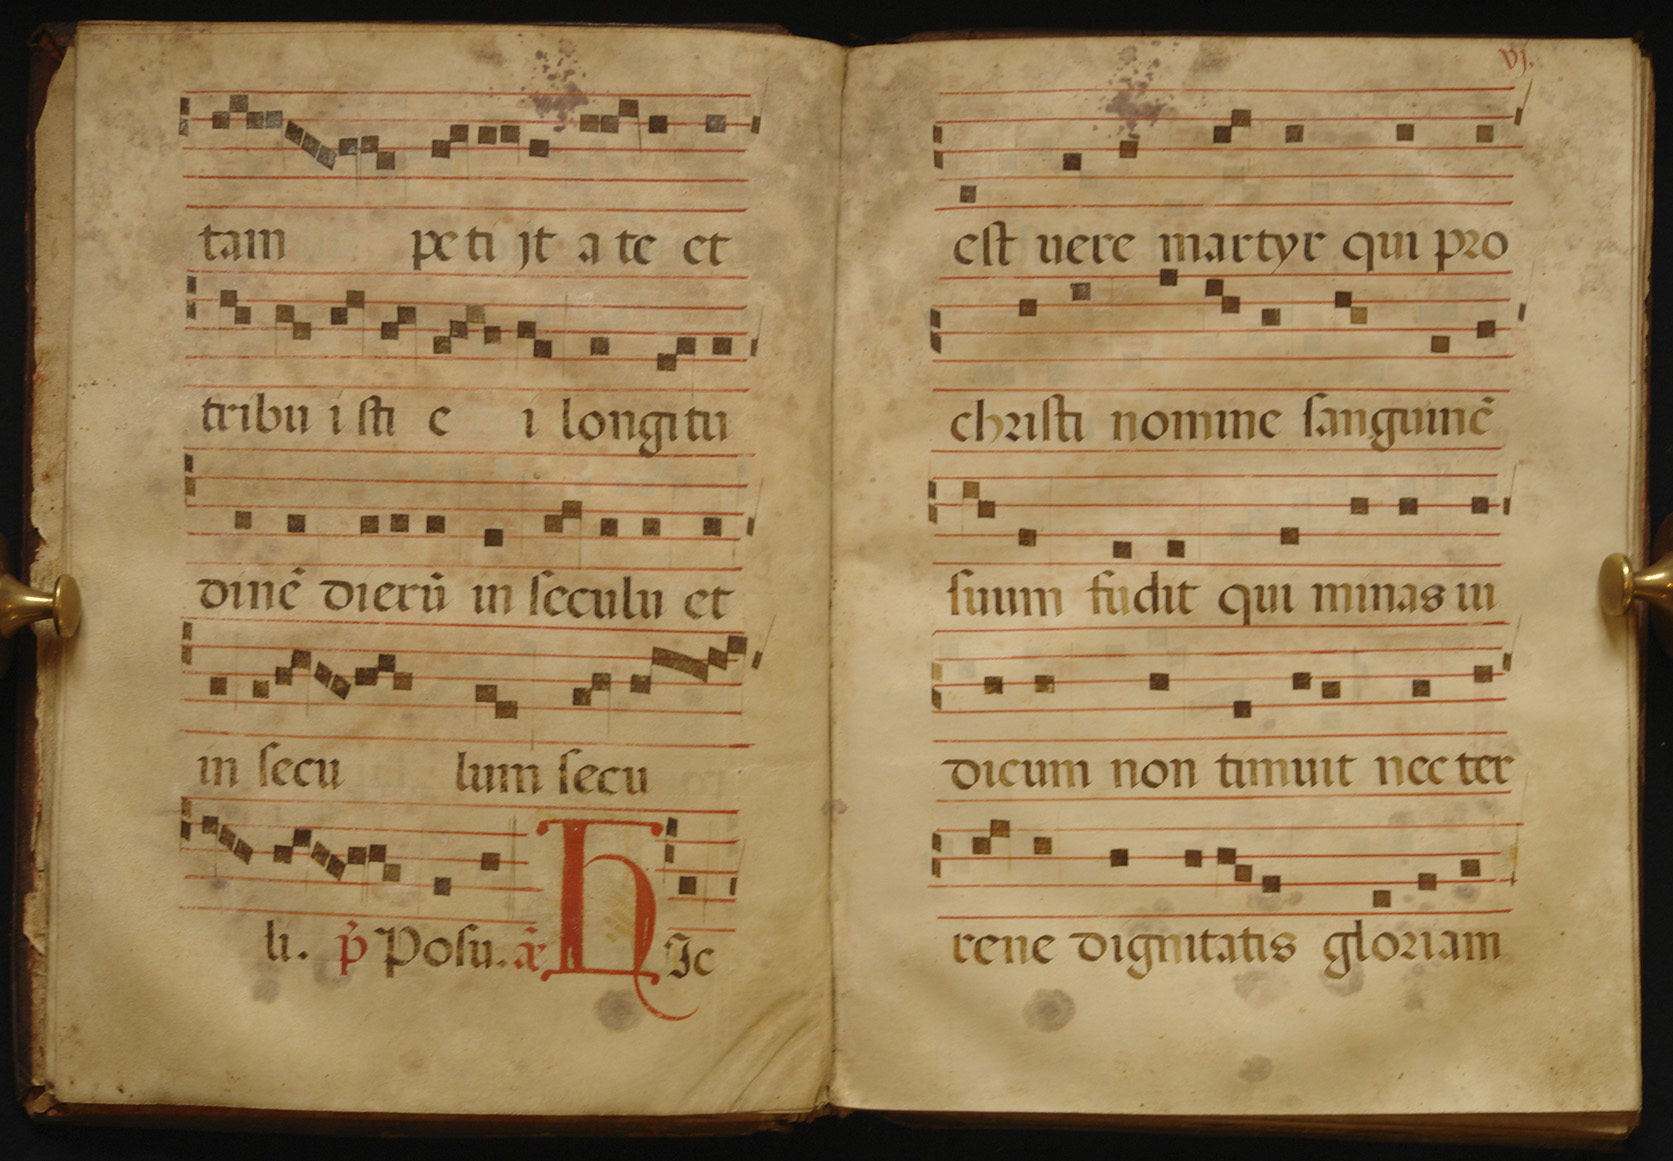 tam peti jt a te et
tribu isti e i longitu
dinē dierū in seculu et
in secu lum secu
li. p̄ Posu. ā HIc
vj.
est uere martyr qui pro
christi nomine sanguinē
suum fudit qui minas iu
dicum non timuit nec ter
rene dignitatis gloriam